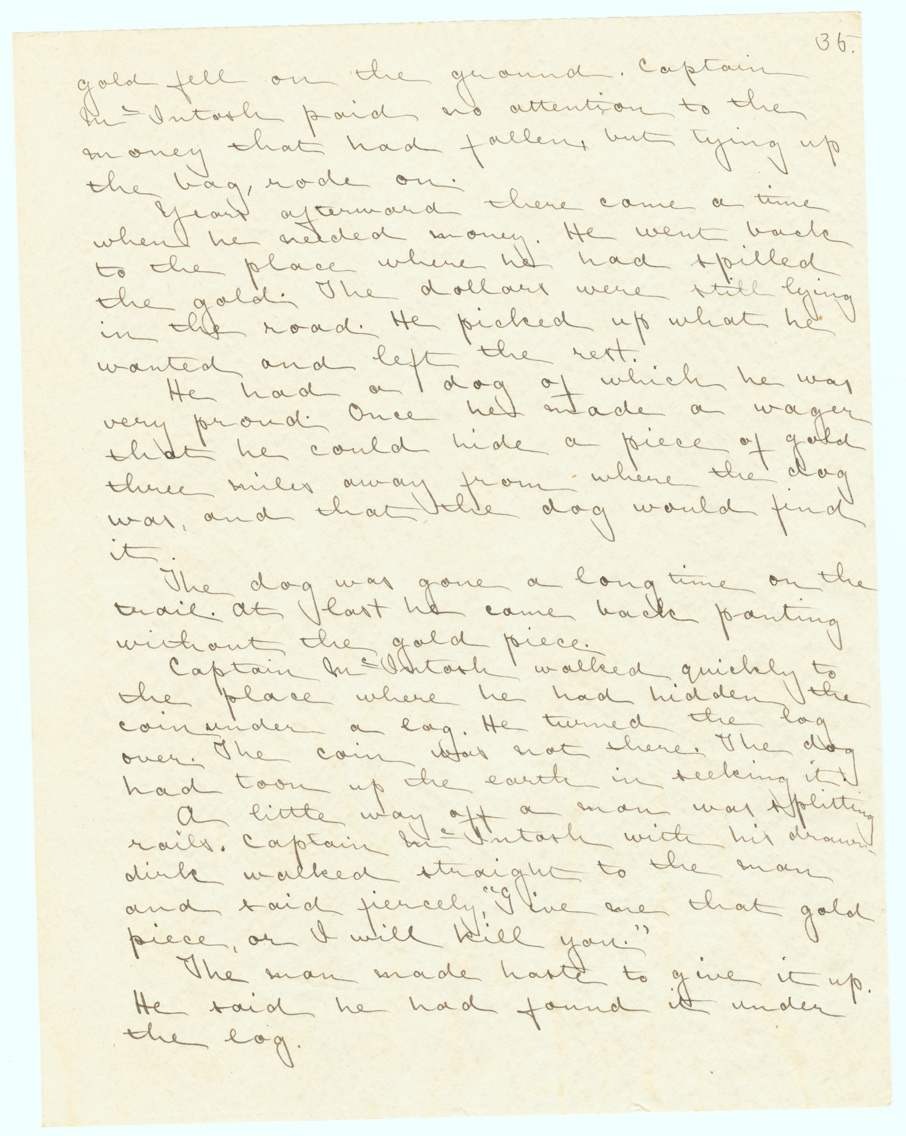 36.
gold fell on the ground. Captain
McIntosh paid no attention to the
money that had fallen, but tying up
the bag, rode on.
Years afterward there came a time
when he needed money. He went back
to the place where he had spilled
the gold. The dollars were still lying
in the road. He picked up what he
wanted and left the rest.
He had a dog of which he was
very proud. Once he made a wager
that he could hide a piece of gold
three miles away from where the dog
was, and that the dog would find
it.
The dog was gone a long time on the
trail. At last he came back panting
without the gold piece.
Captain McIntosh walked quickly to
the place where he had hidden the
coin under a log. He turned the log
over. The coin was not there. The dog
had toon up the earth in seeking it.
A little way off a man was splitting
rails. Captain McIntosh with his drawn
dirk walked straight to the man
and said fiercely, "Give me that gold
piece, or I will kill you."
The man made haste to give it up.
He said he had found it under
the log.